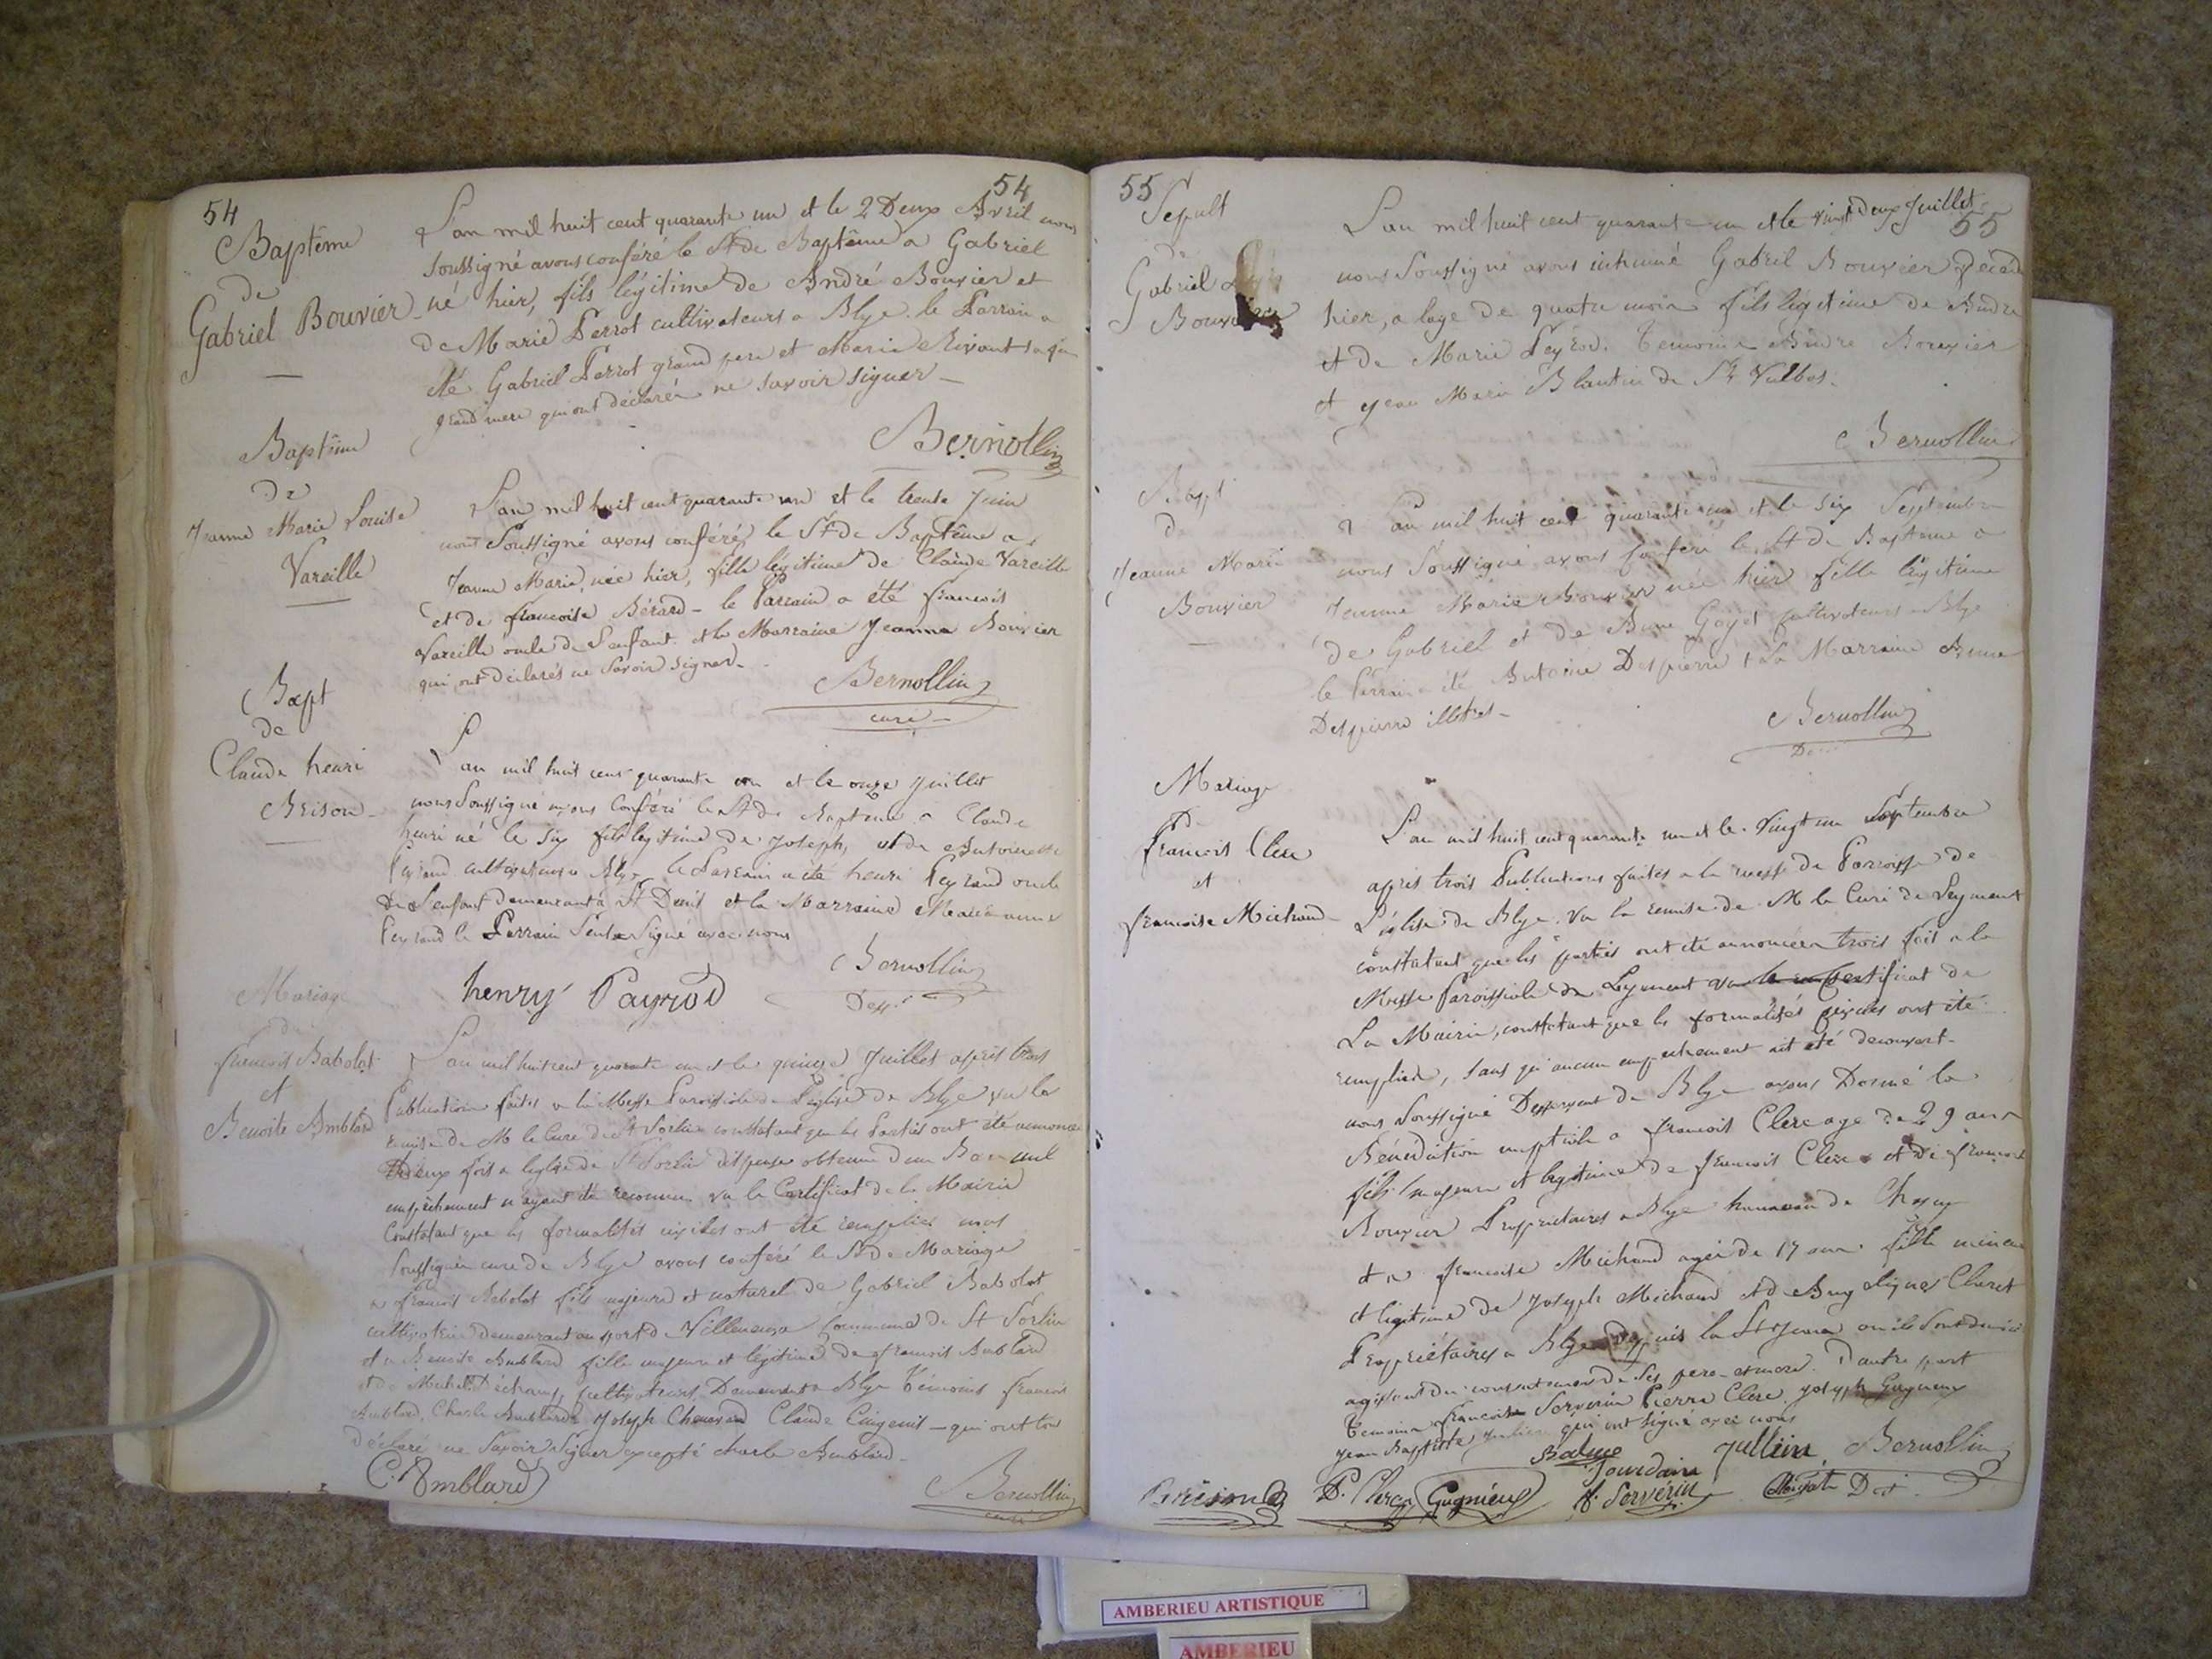 54
54
Baptême
de
Gabriel Bouvier
L'an mil huit cent quarante un et le 2 Deux Avril nous
soussigné avons conféré le St de Baptême a Gabriel
né hier, fils légitime de André Bouvier et
de Marie Perrot cultivateurs a Blye le Parrain a
été Gabriel Perrot grand pere et Marie
grand mere qui ont déclarés ne savoir signer
Bernollin
Baptême
de
Jeanne Marie Louise
Vareille
L'an mil huit cent quarante un et le trente Juin
nous Soussigné avons conféré le St de Baptême a
Jeanne Marie, née hier, fille légitime de Claude Vareille
et de françoise Bérard - le Parrain a été françois
Vareille oncle de l'enfant et la Marraine Jeanne Bouvier
qui ont déclarés ne savoir signer
Bernollin
curé
Bapt
de
Claude henri
Brison
L'an mil huit cent quarante un et le onze Juillet
nous Soussigné avons Conféré le St de Bapteme a Claude
henri né le six fils legitime de Joseph, et de Antoinette
Peyraud cultivateurs a Blye le Parrain a été henri Peyraud oncle
de l'enfant demeurant à St Denis et la Marraine Marianne
Peyraud le Parrain Seul a Signé avec nous
henry Payrod
Bernollin
Dess
Mariage
de
francois Babolat
et
Benoite Amblard
L'an mil huit cent quarante un et le quinze Juillet après trois
Publications faites a la Messe Paroissiale de l'eglise de Blye vu la
remise de M le Curé de St Sorlin constatant que les Parties ont été annoncées
deux fois a l'eglise de St Sorlin dispense obtenue d'un Ban nul
empêchement n'ayant été reconnu vu le Certificat de la Mairie
Constatant que les formalités civiles ont été remplies nous
Soussigné curé de Blye avons conféré le St de Mariage
a francois Babolat fils majeur et naturel de Gabriel Babolat
cultivateur demeurant au port de Villeneuve Commune de St Sorlin
et a Benoite Amblard fille majeure et légitime de francois Amblard
et de Michel Déchamp cultivateurs Demeurant a Blye Témoins francois
Amblard, Charle Amblard Joseph Claude - qui ont tous
Déclaré ne Savoir Signer excepté charle Amblard
C. Amblard
Bernollin
curé
55
55
Sepult
de
Gabriel
Bouvier
L'an mil huit cent quarante un et le vingt deux Juillet
nous Soussigné avons inhumé Gabriel Bouvier Décédé
hier, a l'age de quatre mois fils légitime de André
et de Marie Peyrod. Temoins André Bouvier
et Jean Marie Blantin de St Vulbas
Bernollin
Bapt
de
Jeanne Marie
Bouvier
L'an mil huit cent quarante un et le six Septembre
nous Soussigné avons Conféré le St de Bapteme a
Jeanne Marie Bouvier née hier fille légitime
de Gabriel et de Anne Goyet cultivateurs a Blye
le Parrain a été Antoine Despierre et La Marraine Anne
Despierre illetrés
Bernollin
Dess
Mariage
de
francois Clerc
et
francoise Michaud
L'an mil huit cent quarante un et le Vingt un Septembre
après trois Publications faites a la messe de Paroisse de
L'église de Blye vu la remise de M le Curé de Leyment
constatant que les parties ont été annoncées trois fois a la
Messe Paroissiale de Leyment vu le certificat de
La Mairie, constatant que les formalités civiles ont été
remplies, sans qu'aucun empechement ait été decouvert
nous Soussigné Desservant de Blye avons Donné la
Bénédiction nuptiale a francois Clerc agé de 29 ans
fils majeur et legitime de francois Clerc et de francoise
Bouvier Propriétaires a Blye hameau de
et a francoise Michaud agée de 17 ans fille mineure
et légitime de Joseph Michaud et de Claret
Propriétaires a Blye depuis la
agissant du consentement de Ses pere et mere D'autre part
Temoins francois Servérin Pierre Clerc Joseph Gugnieux
Jean Baptiste Jullien qui ont signé avec nous
Balme
Jourdain
Jullien
Bernollin
Brison
P. Clerc
Gugnieux
f. Servérin
Dst
AMBERIEU ARTISTIQUE
AMBERIEU